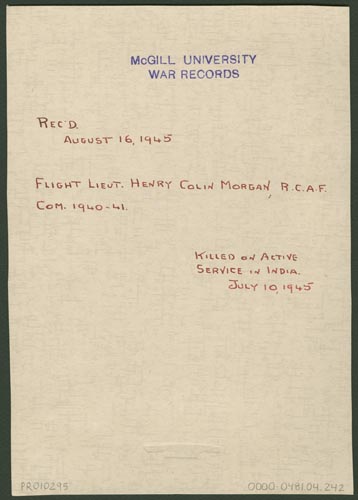 McGILL UNIVERSITY
WAR RECORDS
REC'D.
AUGUST 16, 1945
FLIGHT LIEUT. HENRY COLIN MORGAN, R.C.A.F.
COM. 1940-41.
KILLED ON ACTIVE
SERVICE IN INDIA.
JULY 10, 1945
PR010295
0000-0481.04.242